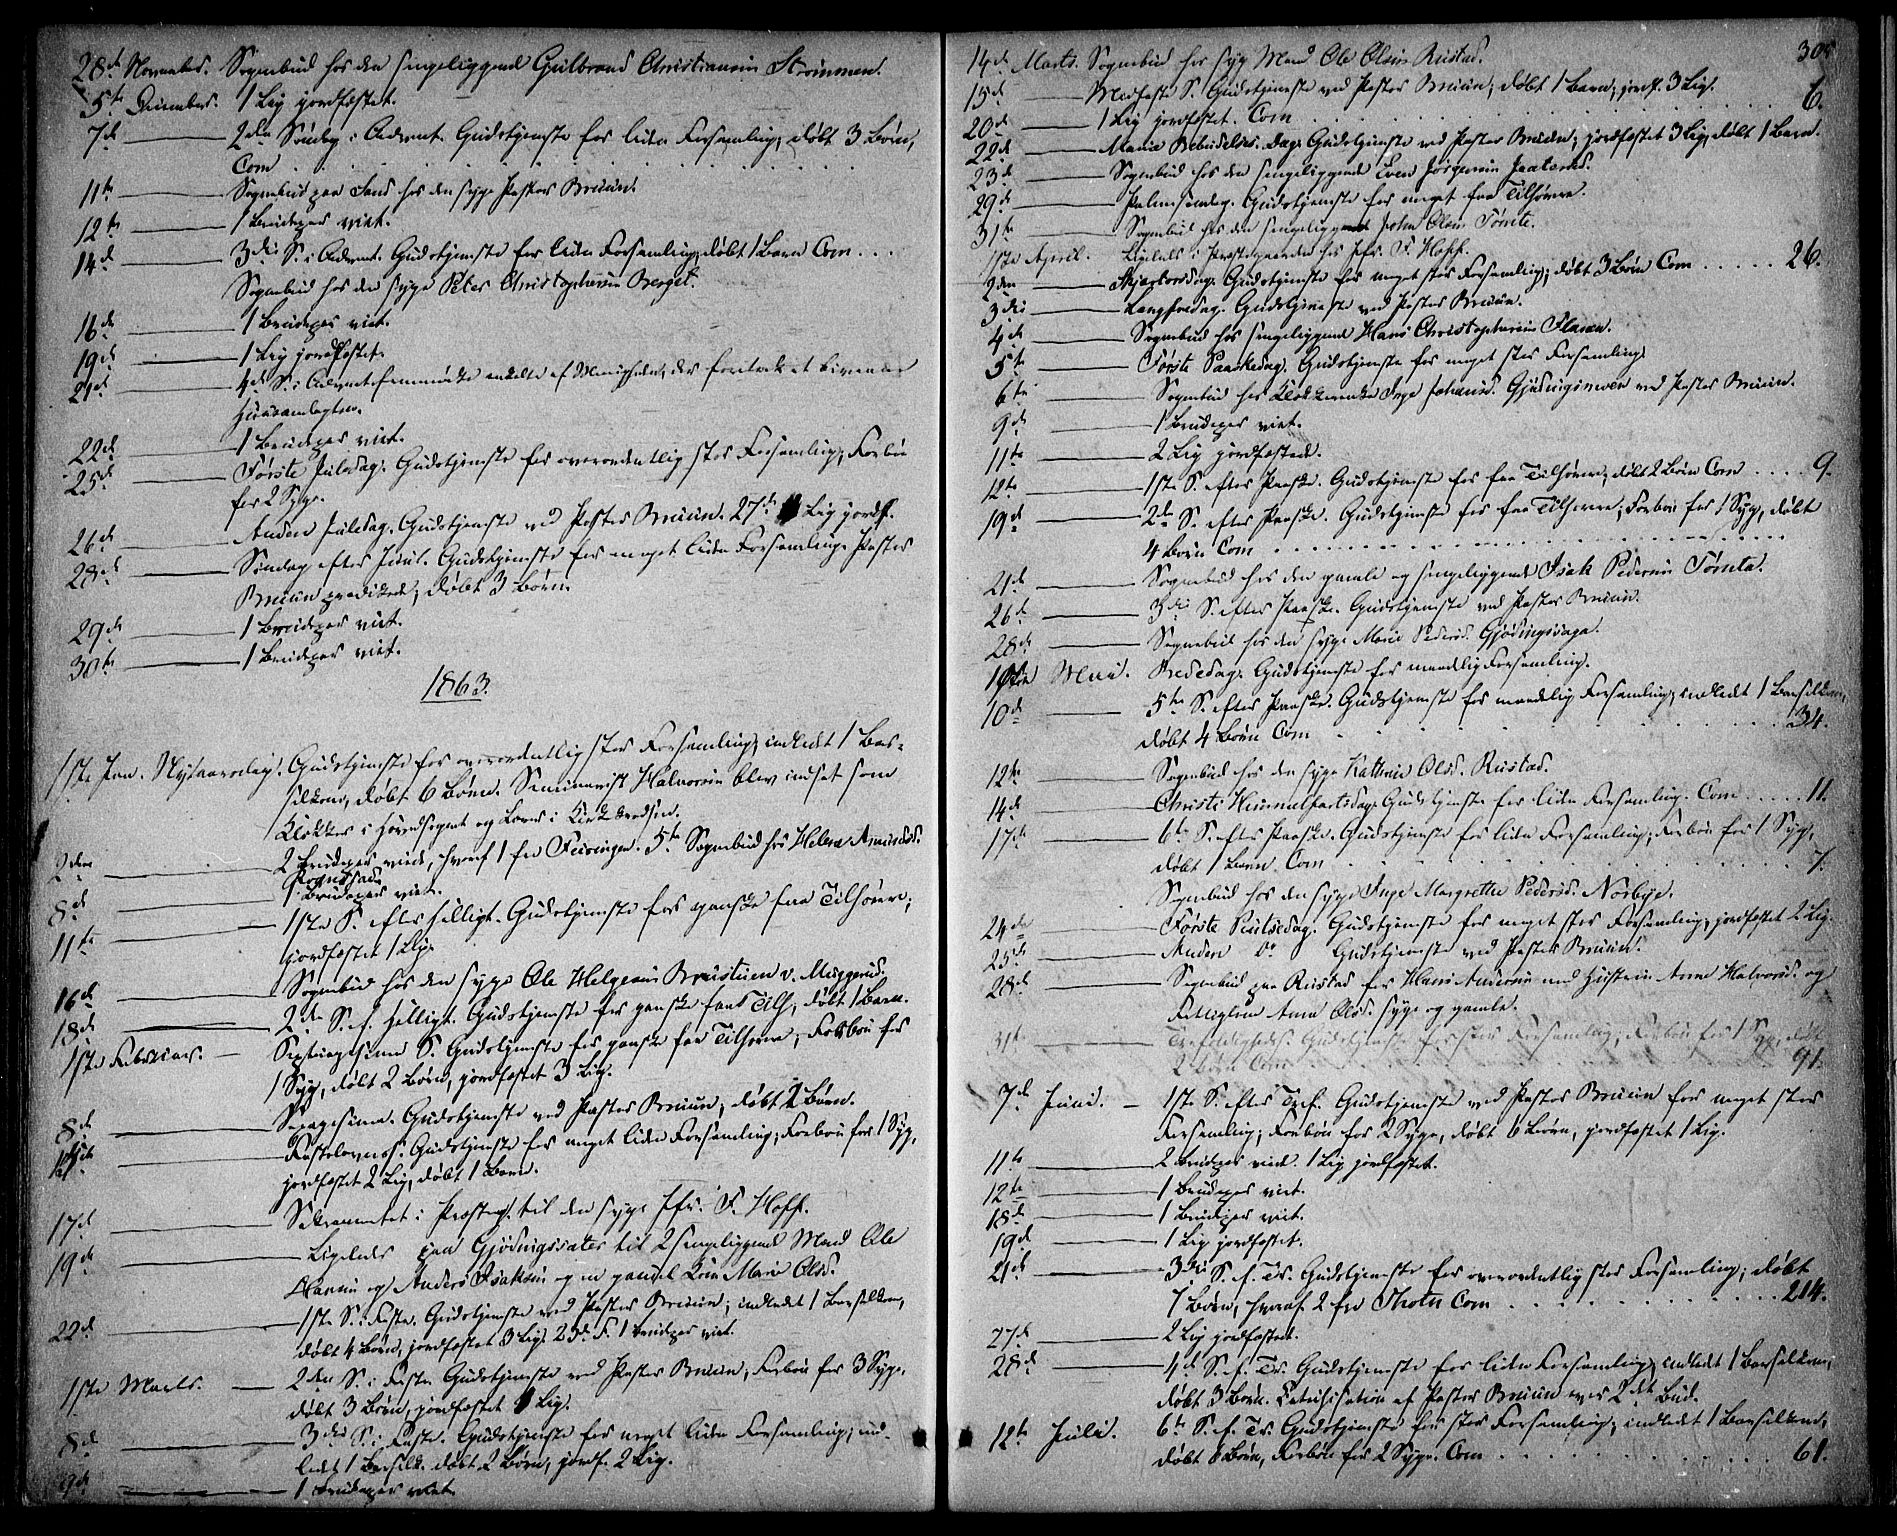 28de November. Sognebud hos den sengeliggende Gulbrand Christiansen Strømmen.
5te December. 1 Lig jordfæstet.
7de 2den Søndag i Advent. Gudstjeneste for liden Forsamling; døbt 3 Børn,
Com
11te Sognebud paa Sand hos den syge Pastor Bruun.
12te 1 Brudepar viet.
14de 3die S. i Advent. Gudstjeneste for liden Forsamling; døbt 1 Barn Com
Sognebud hos den syge Peter Christophersen Berget.
16de 1 Brudepar viet.
19de 1 Lig jordfæstet.
21de 4de S. i Advent fremmødte enkelte af Menigheden, der foretoges
22de 1 Brudepar viet.
25de Første Juledag. Gudstjeneste for overordentlig stor Forsamling; Forbøn
for 2 Syge.
26de Anden Juledag. Gudstjeneste ved Pastor Bruun. 27de 1 Lig jordf.
28de Søndag efter Juul. Gudstjeneste for meget liden Forsamling. Pastor
Bruun prædikede; døbt 3 Børn.
29de 1 Brudepar viet.
30te 1 Brudepar viet.
1863.
1ste Jan. Nytaarsdag. Gudstjeneste for overordentlig stor Forsamling; indledt 1 Bar-
selkone, døbt 6 Børn. Seminarist Halvorsen blev indsat som
Klokker i Hovedsognet og Lærer i Kirkekredsen.
2den 2 Brudepar viede, hvoraf 1 fra Feiringen. 5te Sognebud hos Helene Amundsd.
Rognstad.
8de 1 Brudepar viet.
11te 1ste S. efter Helligt. Gudstjeneste for ganske faa Tilhørere;
jordfæstet 1 Lig.
16de Sognebud hos den syge Ole Helgesen Brustuen v. Muggerud.
18de 2den S. e. Helligt. Gudstjeneste for ganske faa Tilh., døbt 1 Barn.
1ste Februar. Septuagesima S. Gudstjeneste for ganske faa Tilhørere; Forbøn for
1 Syg, døbt 2 Børn, jordfæstet 3 Lig.
8de Sexagesima. Gudstjeneste ved Pastor Bruun; døbt 2 Børn.
15de Fastelavns S. Gudstjeneste for meget liden Forsamling; Forbøn for 1 Syg,
jordfæstet 2 Lig, døbt 1 Barn.
17de Sakramentet i Præsteg. til den syge Jfr. F. Hoff.
19de Ligeledes paa Gjødingsæter til 2 sengeliggende Mænd Ole
Hansen og Anders Isaksen og en gammel Kone Marie Olsd.
22de 1ste S. i Faste. Gudstjeneste ved Pastor Bruun; indledt 1 Barselkone,
døbt 4 Børn, jordfæstet 3 Lig. 23de F. 1 Brudepar viet.
1ste Marts. 2den S. i Faste. Gudstjeneste ved Pastor Bruun, Forbøn for 3 Syge,
døbt 3 Børn, jordfæstet 1 Lig.
8de 3die S. i Faste. Gudstjeneste for meget liden Forsamling; ind-
ledt 1 Barselk. døbt 2 Børn, jordf. 2 Lig.
9de 1 Brudepar viet.
305
14de Marts. Sognebud hos syg Mand Ole Olsen Rustad.
15de Midfaste S. Gudstjeneste ved Pastor Bruun; døbt 1 Barn; jordf. 3 Lig.
20de 1 Lig jordfæstet. Com 6.
22de Mariæ Bebudelses Dag. Gudstjeneste ved Pastor Bruun; jordfæstet 3 Lig, døbt 1 Barn.
23de Sognebud hos den sengeliggende Even Jørgensen
29de Palmesøndag. Gudstjeneste for meget faa Tilhørere.
31te Sognebud hos den sengeliggende John Olsen Tømte.
1ste April. Ligeledes i Præstegaarden hos Jfr. F. Hoff.
2den Skjærtorsdag. Gudstjeneste for meget stor Forsamling; døbt 3 Børn Com 26.
3die Langfredag. Gudstjeneste ved Pastor Bruun.
4de Sognebud hos sengeliggende Hans Christophersen Flaen.
5te Første Paaskedag. Gudstjeneste for meget stor Forsamling.
6te Sognebud hos Klokkerenke Inge Johansd. Gjødingsmoen ved Pastor Bruun.
9de 1 Brudepar viet.
11te 2 Lig jordfæstede.
12te 1ste S. efter Paaske. Gudstjeneste for faa Tilhørere; døbt 2 Børn Com 9.
19de 2den S. efter Paaske. Gudstjeneste for faa Tilhørere; Forbøn for 1 Syg, døbt
4 Børn Com
21de Sognebud hos den gamle og sengeliggende Isak Pedersen Tømte.
26de 3die S. efter Paaske. Gudstjeneste ved Pastor Bruun.
28de Sognebud hos den syge Marie Pedersd. Gjødingshaga.
1ste Mai. Bededag. Gudstjeneste for maadelig Forsamling.
10de 5te S. efter Paaske. Gudstjeneste for maadelig Forsamling; indledt 1 Barselkone,
døbt 4 Børn Com 34.
12te Sognebud hos den syge Kathrine Olsd. Rustad.
14de Christi Himmelfartsdag. Gudstjeneste for liden Forsamling. Com 11.
17de 6te S. efter Paaske. Gudstjeneste for liden Forsamling; Forbøn for 1 Syg,
døbt 1 Barn. Com 7.
Sognebud hos den syge Inge Margrethe Pedersd. Norbye.
24de Første Pintsedag. Gudstjeneste for meget stor Forsamling; jordfæstet 2 Lig.
25de Anden Do Gudstjeneste ved Pastor Bruun.
28de Sognebud paa Rustad for Hans Andersen med Hustru Anne Halvorsd. og
Fattiglem Anne Olsd. syge og gamle.
31te Trefoldigheds. Gudstjeneste for stor Forsamling; Forbøn for 1 Syg, døbt
2 Børn Com 91.
7de Juni. 1ste S. efter Tref. Gudstjeneste ved Pastor Bruun for meget stor
Forsamling; Forbøn for 2 Syge, døbt 6 Børn, jordfæstet 1 Lig.
11te 2 Brudepar viede. 1 Lig jordfæstet.
12te 1 Brudepar viet.
18de 1 Brudepar viet.
19de 1 Lig jordfæstet.
21de 3die S. e. Tr. Gudstjeneste for overordentlig stor Forsamling; døbt
7 Børn, hvoraf 2 fra Thoten Com 214.
27de 2 Lig jordfæstet.
28de 4de S. e. Tr. Gudstjeneste for liden Forsamling; indledt 1 Barselkone,
døbt 3 Børn. Catechisation af Pastor Bruun over 2det Bud.
12te Juli. 6te S. e. Tr. Gudstjeneste for stor Forsamling; indledt 1 Barselkone,
døbt 8 Børn, Forbøn for 2 Syge. Com 61.